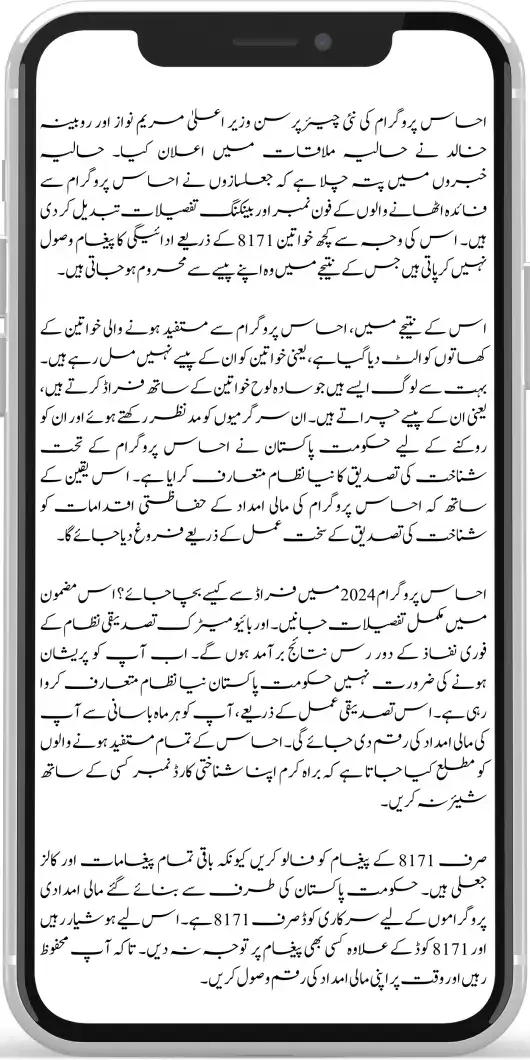 احساس پروگرام کی نئی چیئرپرسن وزیر اعلیٰ مریم نواز اور روبینہ
خالد نے حالیہ ملاقات میں اعلان کیا۔ حالیہ
خبروں میں پتہ چلا ہے کہ جعلسازوں نے احساس پروگرام سے
فائدہ اٹھانے والوں کے فون نمبر اور بینکنگ تفصیلات تبدیل کر دی
ہیں۔ اس کی وجہ سے کچھ خواتین 8171 کے ذریعے ادائیگی کا پیغام وصول
نہیں کر پاتی ہیں جس کے نتیجے میں وہ اپنے پیسے سے محروم ہو جاتی ہیں۔
اس کے نتیجے میں، احساس پروگرام سے مستفید ہونے والی خواتین کے
کھاتوں کو الٹ دیا گیا ہے، یعنی خواتین کو ان کے پیسے نہیں مل رہے ہیں۔
بہت سے لوگ ایسے ہیں جو سادہ لوح خواتین کے ساتھ فراڈ کرتے ہیں،
یعنی ان کے پیسے چراتے ہیں۔ ان سرگرمیوں کو مد نظر رکھتے ہوئے اور ان کو
روکنے کے لیے حکومت پاکستان نے احساس پروگرام کے تحت
شناخت کی تصدیق کا نیا نظام متعارف کرایا ہے۔ اس یقین کے
ساتھ کہ احساس پروگرام کی مالی امداد کے حفاظتی اقدامات کو
شناخت کی تصدیق کے سخت عمل کے ذریعے فروغ دیا جائے گا۔
احساس پروگرام 2024 میں فراڈ سے کیسے بچا جائے؟ اس مضمون
میں مکمل تفصیلات جانیں۔ اور بائیو میٹرک تصدیقی نظام کے
فوری نفاذ کے دور رس نتائج برآمد ہوں گے۔ اب آپ کو پریشان
ہونے کی ضرورت نہیں حکومت پاکستان نیا نظام متعارف کروا
رہی ہے۔ اس تصدیقی عمل کے ذریعے، آپ کو ہر ماہ باسانی سے آپ
کی مالی امداد کی رقم دی جائے گی۔ احساس کے تمام مستفید ہونے والوں
کو مطلع کیا جاتا ہے کہ براہ کرم اپنا شناختی کارڈ نمبر کسی کے ساتھ
شیئر نہ کریں۔
صرف 8171 کے پیغام کو فالو کریں کیونکہ باقی تمام پیغامات اور کالز
جعلی ہیں۔ حکومت پاکستان کی طرف سے بنائے گئے مالی امدادی
پروگراموں کے لیے سرکاری کوڈ صرف 8171 ہے۔ اس لیے ہوشیار رہیں
اور 8171 کوڈ کے علاوہ کسی بھی پیغام پر توجہ نہ دیں۔ تاکہ آپ محفوظ
رہیں اور وقت پر اپنی مالی امداد کی رقم وصول کریں۔